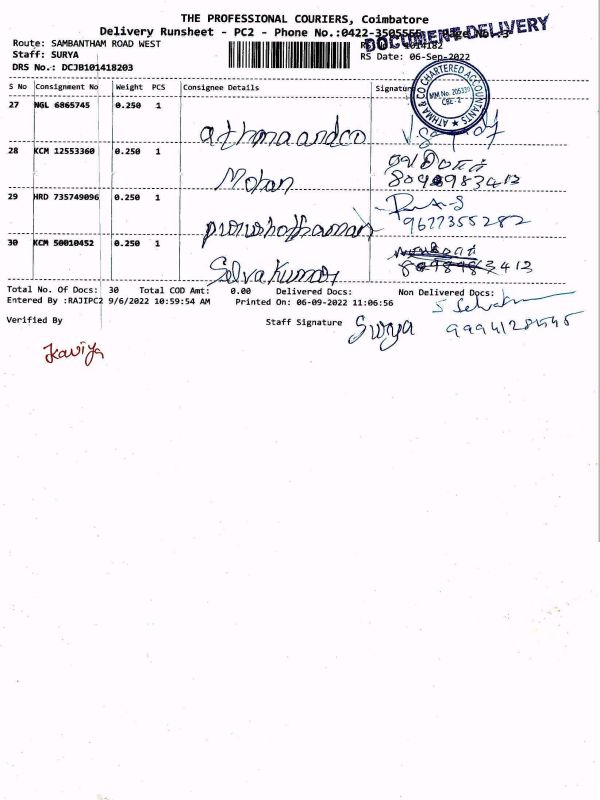 THE PROFESSIONAL COURIERS, Coimbatore
Delivery Runsheet - PC2 - Phone No.:0422-3505555
DOCUMENT DELIVERY
Route: SAMBANTHAM ROAD WEST
Staff: SURYA RS Date: 06-Sep-2022
DRS No.: DCJB101418203
S No Consignment No Weight PCS Consignee Details Signature
27 NGL 6865745 0.250 1
athmaandco
ATHMA & CO CHARTERED ACCOUNTANTS
CBE - 2
28 KCM 12553360 0.250 1
Mohan
29 HRD 735749096 0.250 1
9677355282
30 KCM 50010452 0.250 1
Selvakumar
Total No. Of Docs: 30 Total COD Amt: 0.00 Delivered Docs: Non Delivered Docs:
Entered By :RAJIPC2 9/6/2022 10:59:54 AM Printed On: 06-09-2022 11:06:56
Verified By Staff Signature Surya
Kaviya